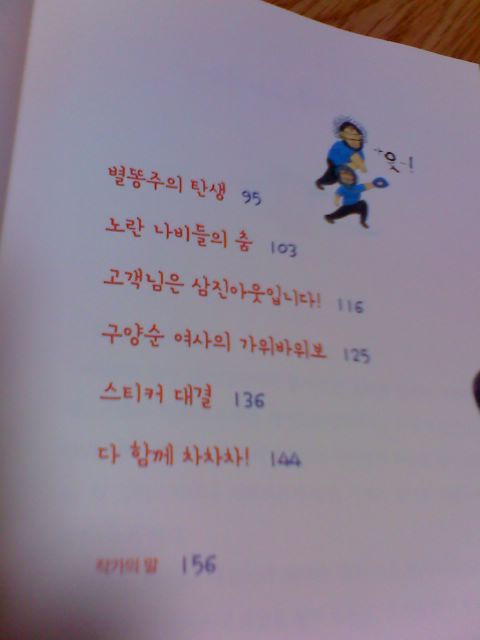 아웃-!
별똥주의 탄생 95
노란 나비들의 춤 103
고객님은 삼진아웃입니다! 116
구양순 여사의 가위바위보 125
스티커 대결 136
다 함께 차차차! 144
작가의 말 156